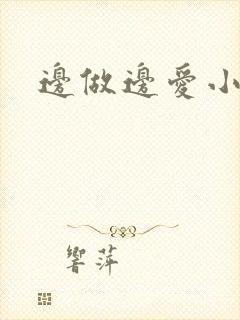 邊做邊愛小
響萍